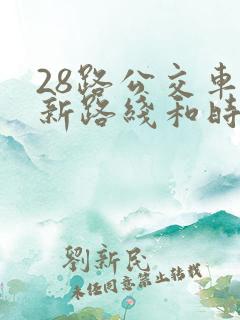 28路公交車
新路綫和時
劉新民
未經同意禁止轉載